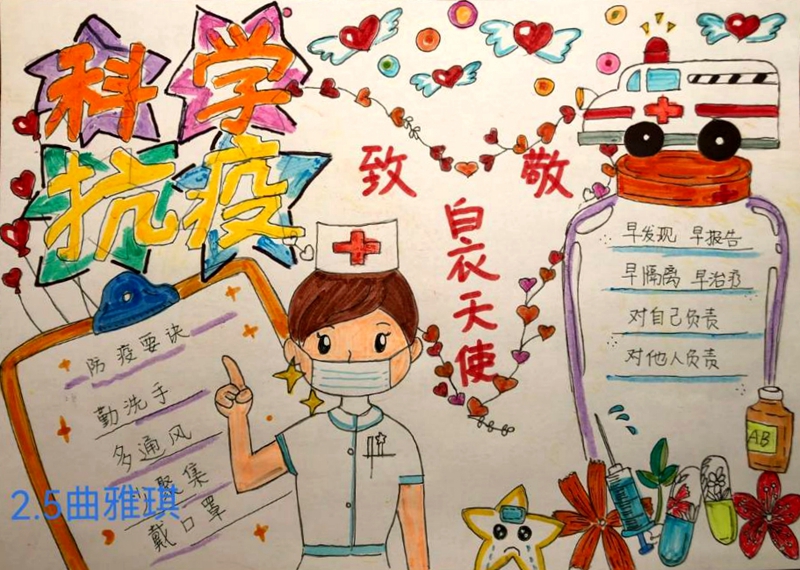 科学
抗疫
致敬
白衣天使
防疫要诀
勤洗手
多通风
聚集
戴口罩
2.5曲雅琪
早发现 早报告
早隔离 早治疗
对自己负责
对他人负责
AB